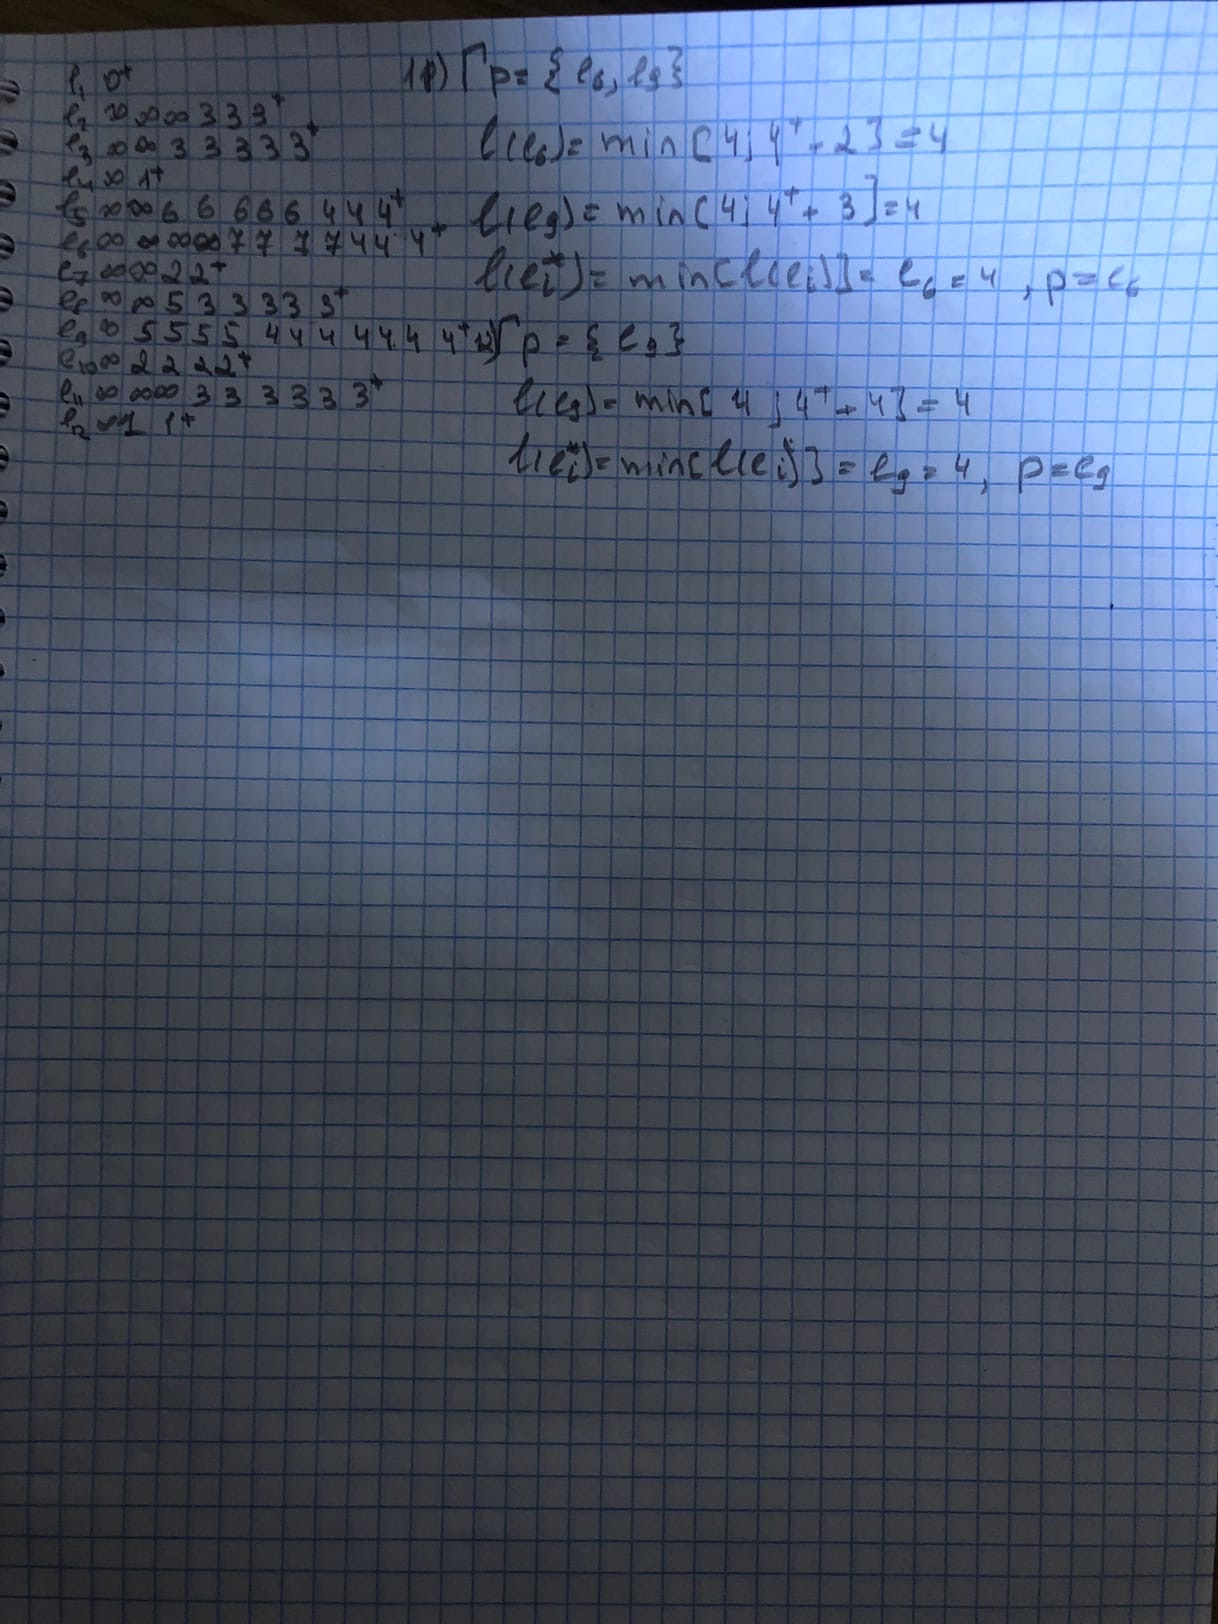 e₁ 0⁺
e₂ ∞ ∞ ∞ 3 3 3⁺
e₃ ∞ ∞ 3 3 3 3 3⁺
e₄ ∞ 1⁺
e₅ ∞ ∞ 6 6 6 6 6 4 4 4⁺
e₆ ∞ ∞ ∞ ∞ 7 7 7 7 4 4 4⁺
e₇ ∞ ∞ 2 2⁺
e₈ ∞ ∞ 5 3 3 3 3 3⁺
e₉ ∞ 5 5 5 5 4 4 4 4 4 4 4⁺
e₁₀ ∞ 2 2 2 2⁺
e₁₁ ∞ ∞ ∞ 3 3 3 3 3 3⁺
e₁₂ ∞ 1 1⁺
11) Γp = {e₆, e₉}
l(e₆) = min[4; 4⁺ + 2] = 4
l(e₉) = min[4; 4⁺ + 3] = 4
l(eᵢ*) = min[l(eᵢ)] = e₆ = 4, p = e₆
12) Γp = {e₉}
l(e₉) = min[4; 4⁺ + 4] = 4
l(eᵢ*) = min[l(eᵢ)] = e₉ = 4, p = e₉